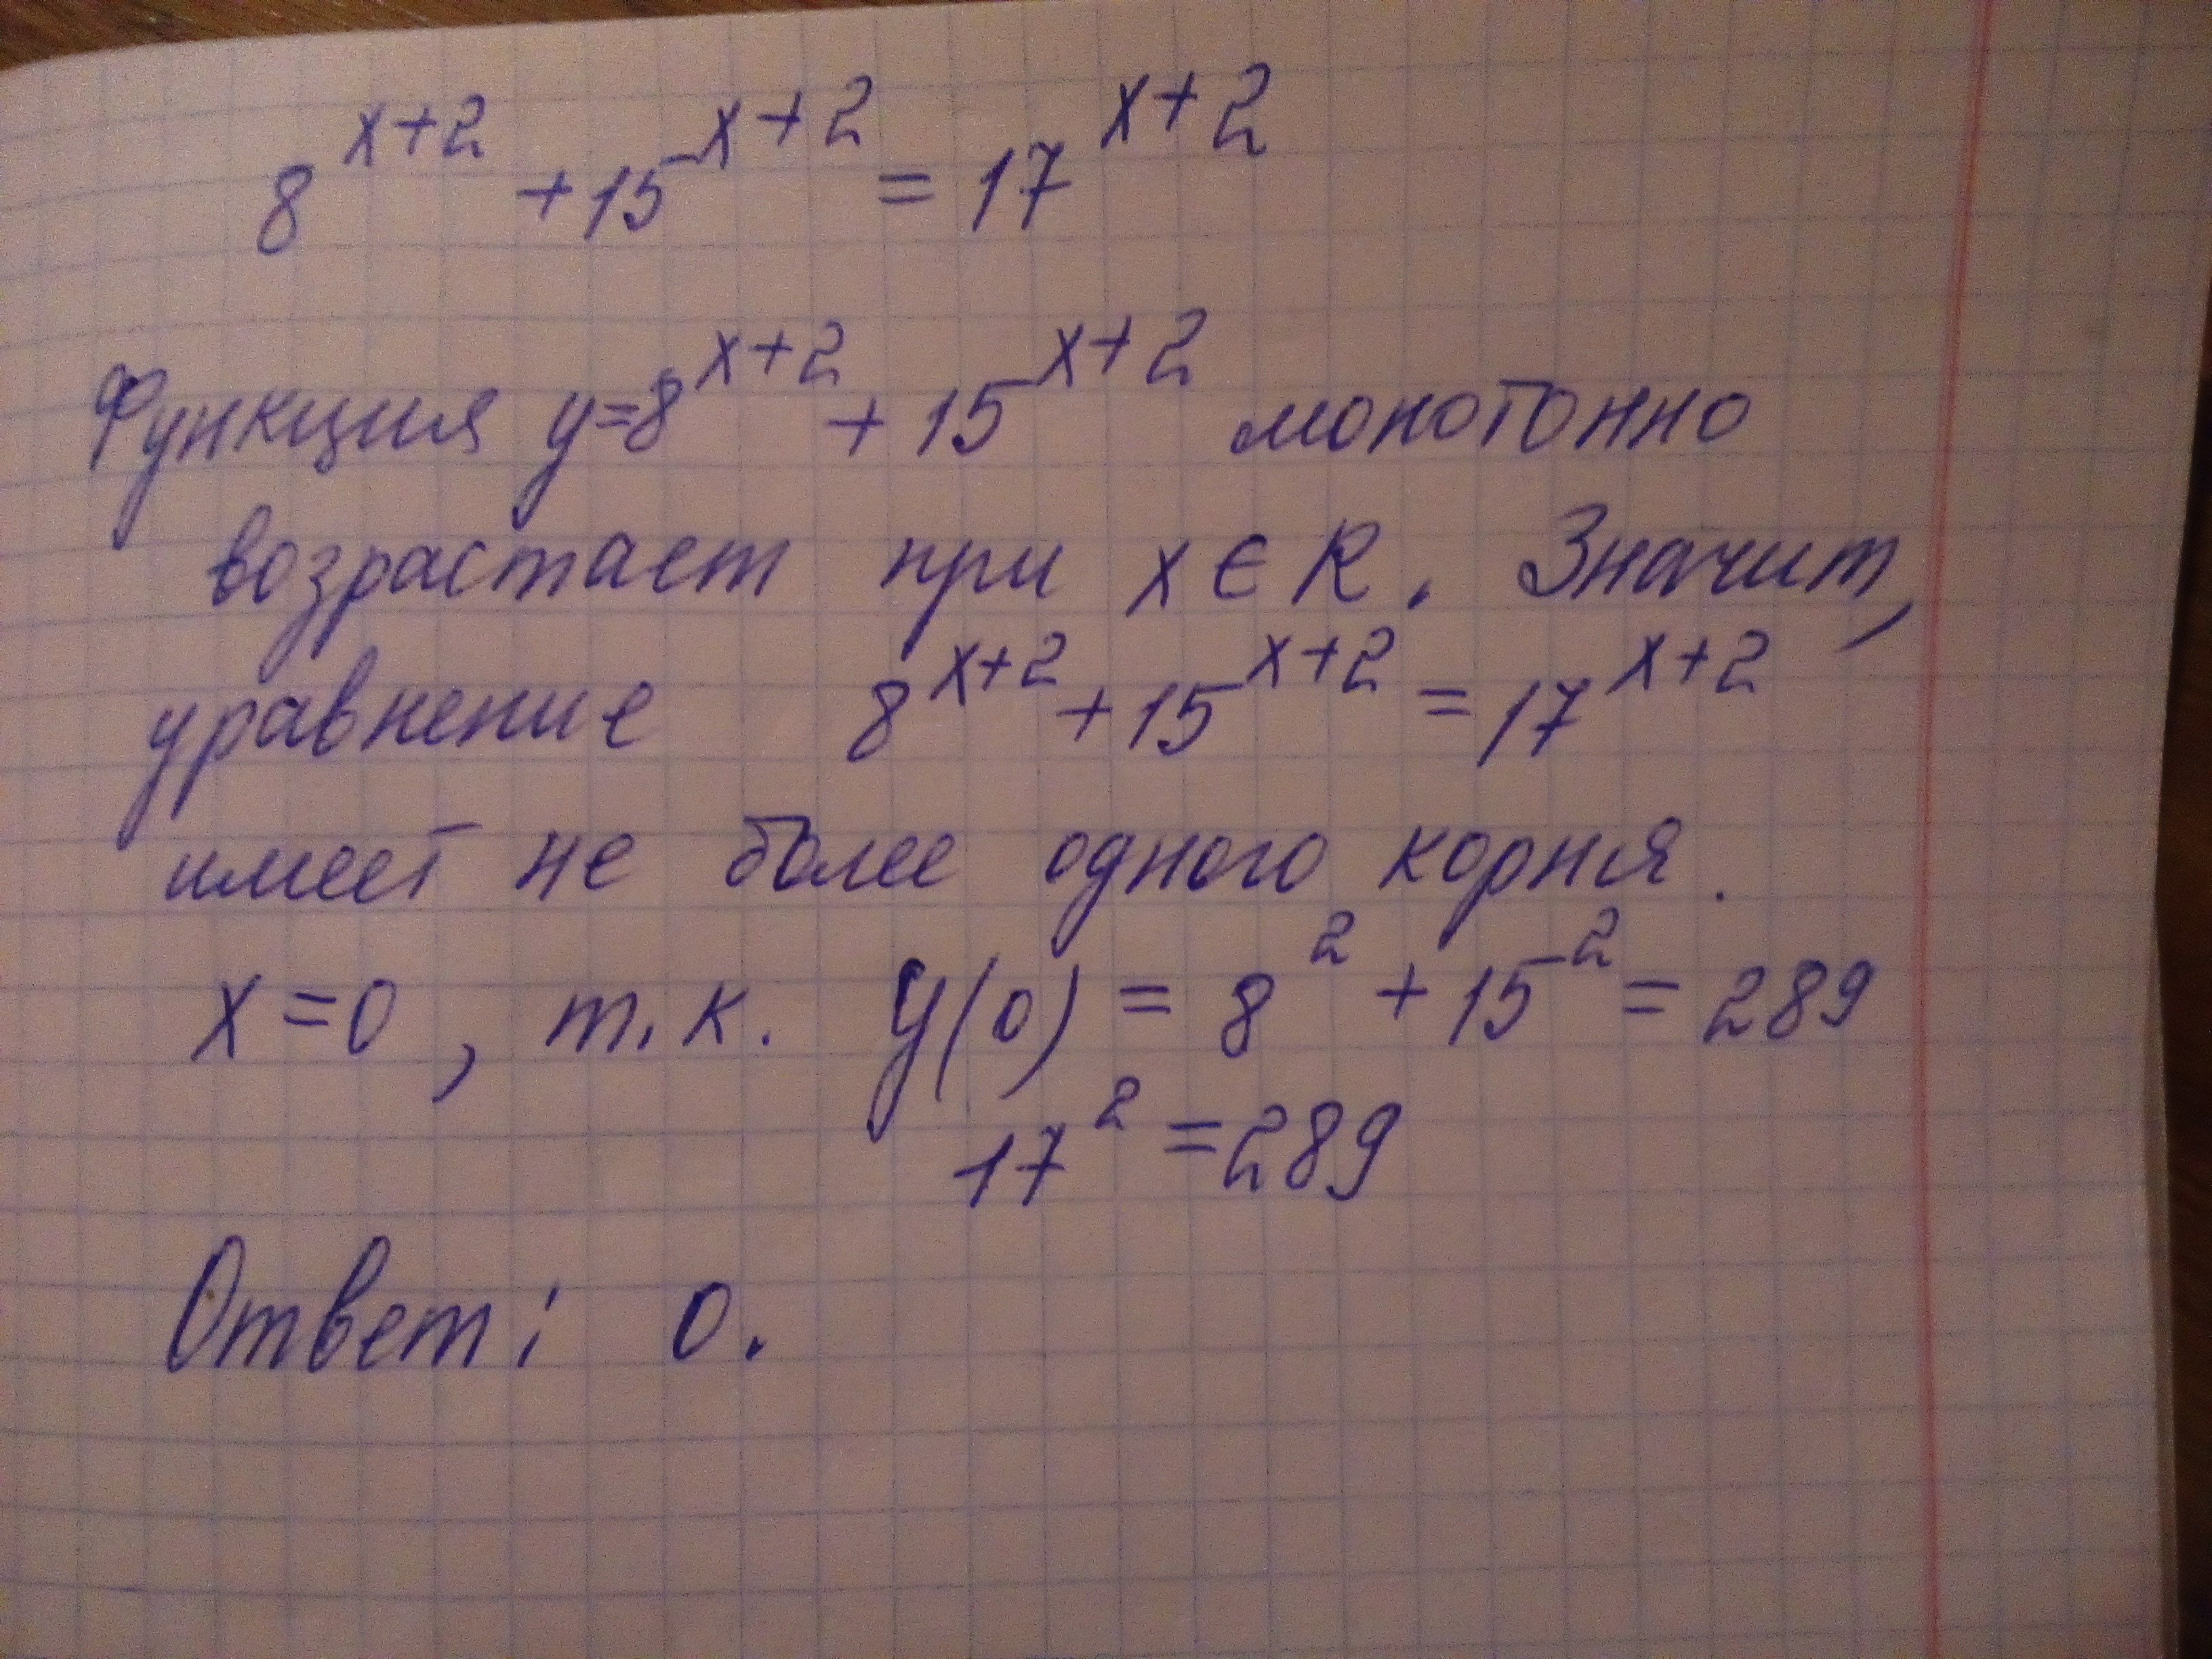 8^{x+2} + 15^{x+2} = 17^{x+2}
Функция y=8^{x+2} + 15^{x+2} монотонно
возрастает при x ∈ R. Значит,
уравнение 8^{x+2} + 15^{x+2} = 17^{x+2}
имеет не более одного корня.
x = 0, т.к. y(0) = 8^2 + 15^2 = 289
17^2 = 289
Ответ: 0.